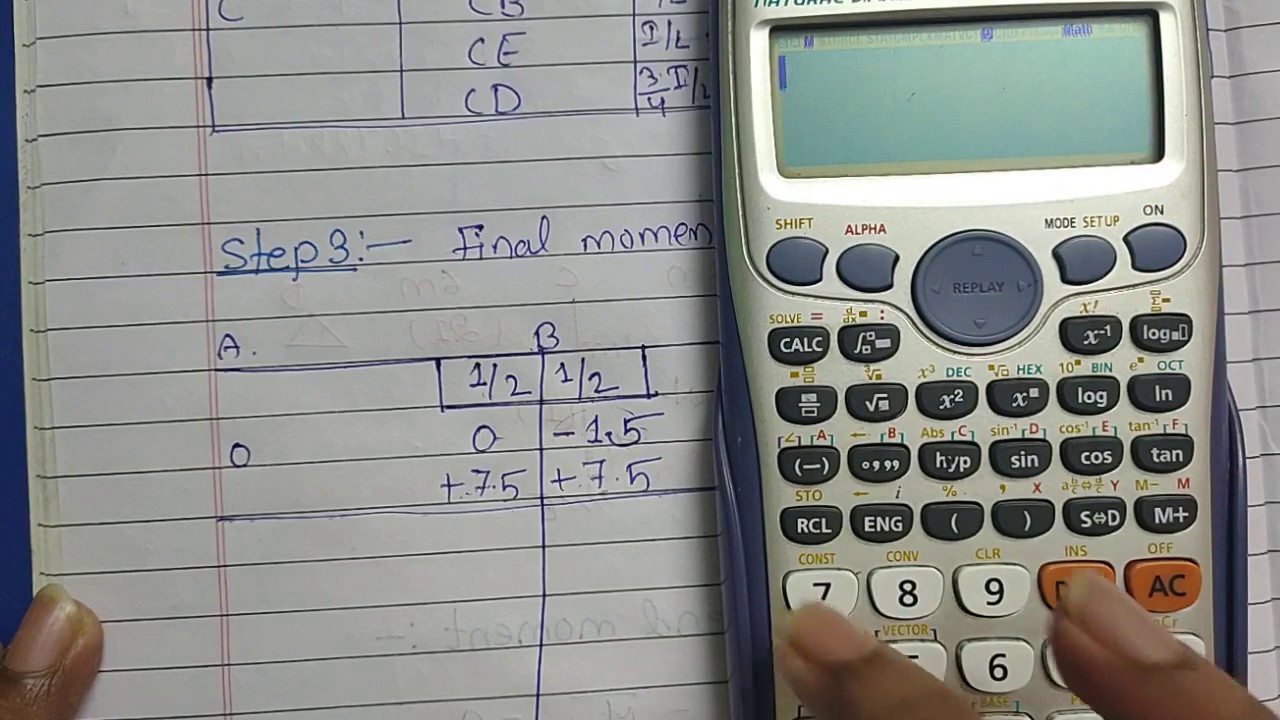 C CB
CE I/L
CD 3/4 I/2
Step 3:- Final momen
A. B
1/2 1/2
0 0 -1.5
+7.5 +7.5
Math
SHIFT ALPHA MODE SETUP ON
REPLAY
SOLVE = d/dx : x! Σ
CALC ∫ x⁻¹ log
x³ DEC HEX 10 BIN e OCT
√ x² x log ln
[A] [B] Abs [C] sin⁻¹ [D] cos⁻¹ [E] tan⁻¹ [F]
(−) °,,, hyp sin cos tan
STO ← i % , X a b/c⇔d/c Y M− M
RCL ENG ( ) S⇔D M+
CONST CONV CLR INS OFF
7 8 9 AC
VECTOR
6
BASE